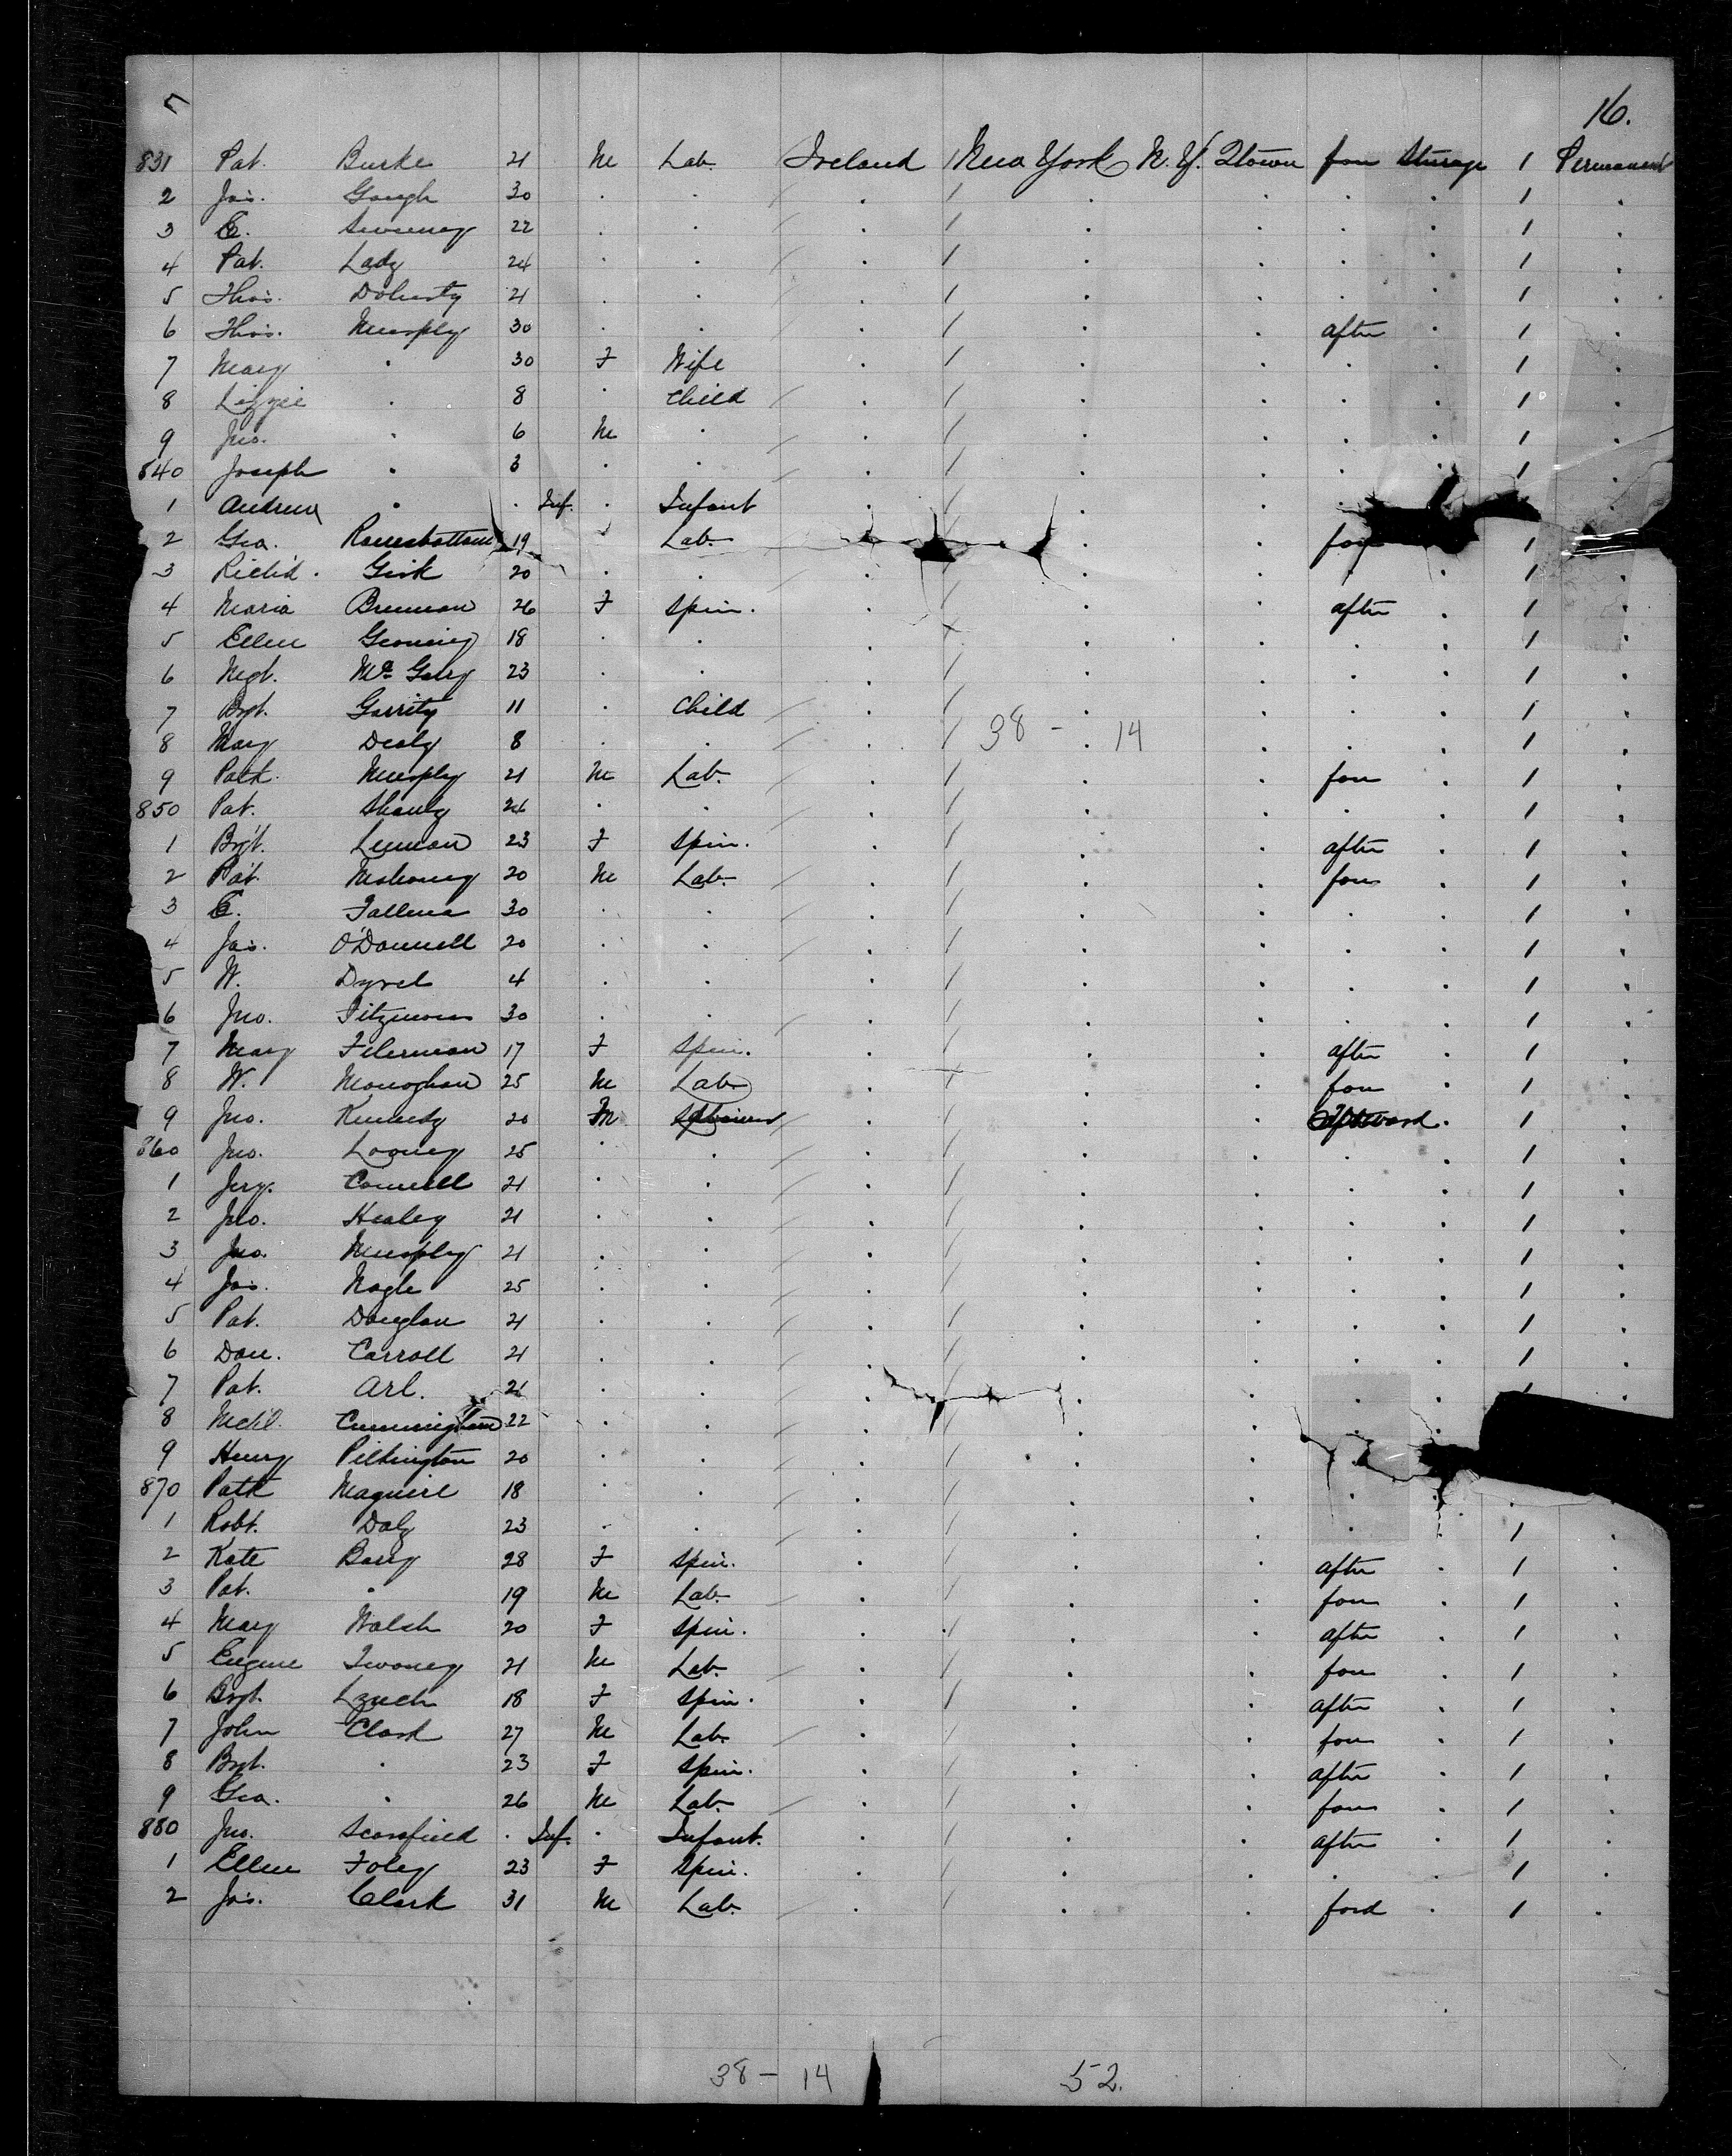 16.
831 Pat. Burke 21 M Lab. Ireland 1 New York N.Y. Qtown for Sterage 1 Permanent
2 Jas. Gough 30 . . . 1 . . . . 1 .
3 E. Sweeney 22 . . . 1 . . . . 1 .
4 Pat. Lady 24 . . . 1 . . . . 1 .
5 Thos. Doherty 21 . . . 1 . . . . 1 .
6 Thos. Murphy 30 . . . 1 . . after . 1 .
7 Mary . 30 F Wife . 1 . . . . 1 .
8 Lizzie . 8 . Child . 1 . . . . 1 .
9 Jno. . 6 M . . 1 . . . . 1 .
840 Joseph . 3 . . . 1 . . . . 1 .
1 Andrew . . Inf. . Infant . 1 . . .
2 Geo. Ramsbottom 19 . Lab. . for 1
3 Richd. Girk 20 . . . 1 . . . . 1 .
4 Maria Brennan 26 F Spin. . 1 . . after . 1 .
5 Ellen 18 . . . 1 . . . . 1 .
6 Mgt. 23 . . . 1 . . . . 1 .
7 Bgt. Garrity 11 . Child . 1 . . . . 1 .
8 Mary Dealy 8 . . . 1 38 - 14 . . . 1 .
9 Patk. Murphy 21 M Lab. . 1 . . for . 1 .
850 Pat. Shanly 24 . . . 1 . . . . 1 .
1 Brgt. Lennon 23 F Spin. . 1 . . after . 1 .
2 Pat. Mahoney 20 M Lab. . 1 . . for . 1 .
3 E. 30 . . . 1 . . . . 1 .
4 Jas. O'Donnell 20 . . . 1 . . . . 1 .
5 W. 4 . . . 1 . . . . 1 .
6 Jno. 30 . . . 1 . . . . 1 .
7 Mary 17 F Spin. . 1 . . after . 1 .
8 W. Monoghan 25 M Lab. . 1 . . for . 1 .
9 Jno. Kennedy 20 M . 1 . . . 1 .
860 Jno. Looney 25 . . . 1 . . . . 1 .
1 Jery. Connell 21 . . . 1 . . . . 1 .
2 Jno. Healey 21 . . . 1 . . . . 1 .
3 Jno. Murphy 21 . . . 1 . . . . 1 .
4 Jas. Nagle 25 . . . 1 . . . . 1 .
5 Pat. Douglan 21 . . . 1 . . . . 1 .
6 Dan. Carroll 21 . . . 1 . . . . 1 .
7 Pat. Arl. 21 . . . 1 . . . .
8 Mchl. Cunningham 22 . . . 1 . . . .
9 Henry Pilkington 20 . . . 1 . . .
870 Patk Maguire 18 . . . 1 . . . . . .
1 Robt. Daly 23 . . . 1 . . . . 1 .
2 Kate Barry 28 F Spin. . 1 . . after . 1 .
3 Pat. . 19 M Lab. . 1 . . for . 1 .
4 Mary Walsh 20 F Spin. . 1 . . after . 1 .
5 Eugene Twoney 21 M Lab. . 1 . . for . 1 .
6 Bgt. Lynch 18 F Spin. . 1 . . after . 1 .
7 John Clark 27 M Lab. . 1 . . for . 1 .
8 Bgt. . 23 F Spin. . 1 . . after . 1 .
9 Geo. . 26 M Lab. . 1 . . for . 1 .
880 Jno. Scarsfield . Inf. . Infant. . 1 . . after . 1 .
1 Ellen Foley 23 F Spin. . 1 . . . . 1 .
2 Jas. Clark 31 M Lab. . 1 . . ford . 1 .
38 - 14 52.